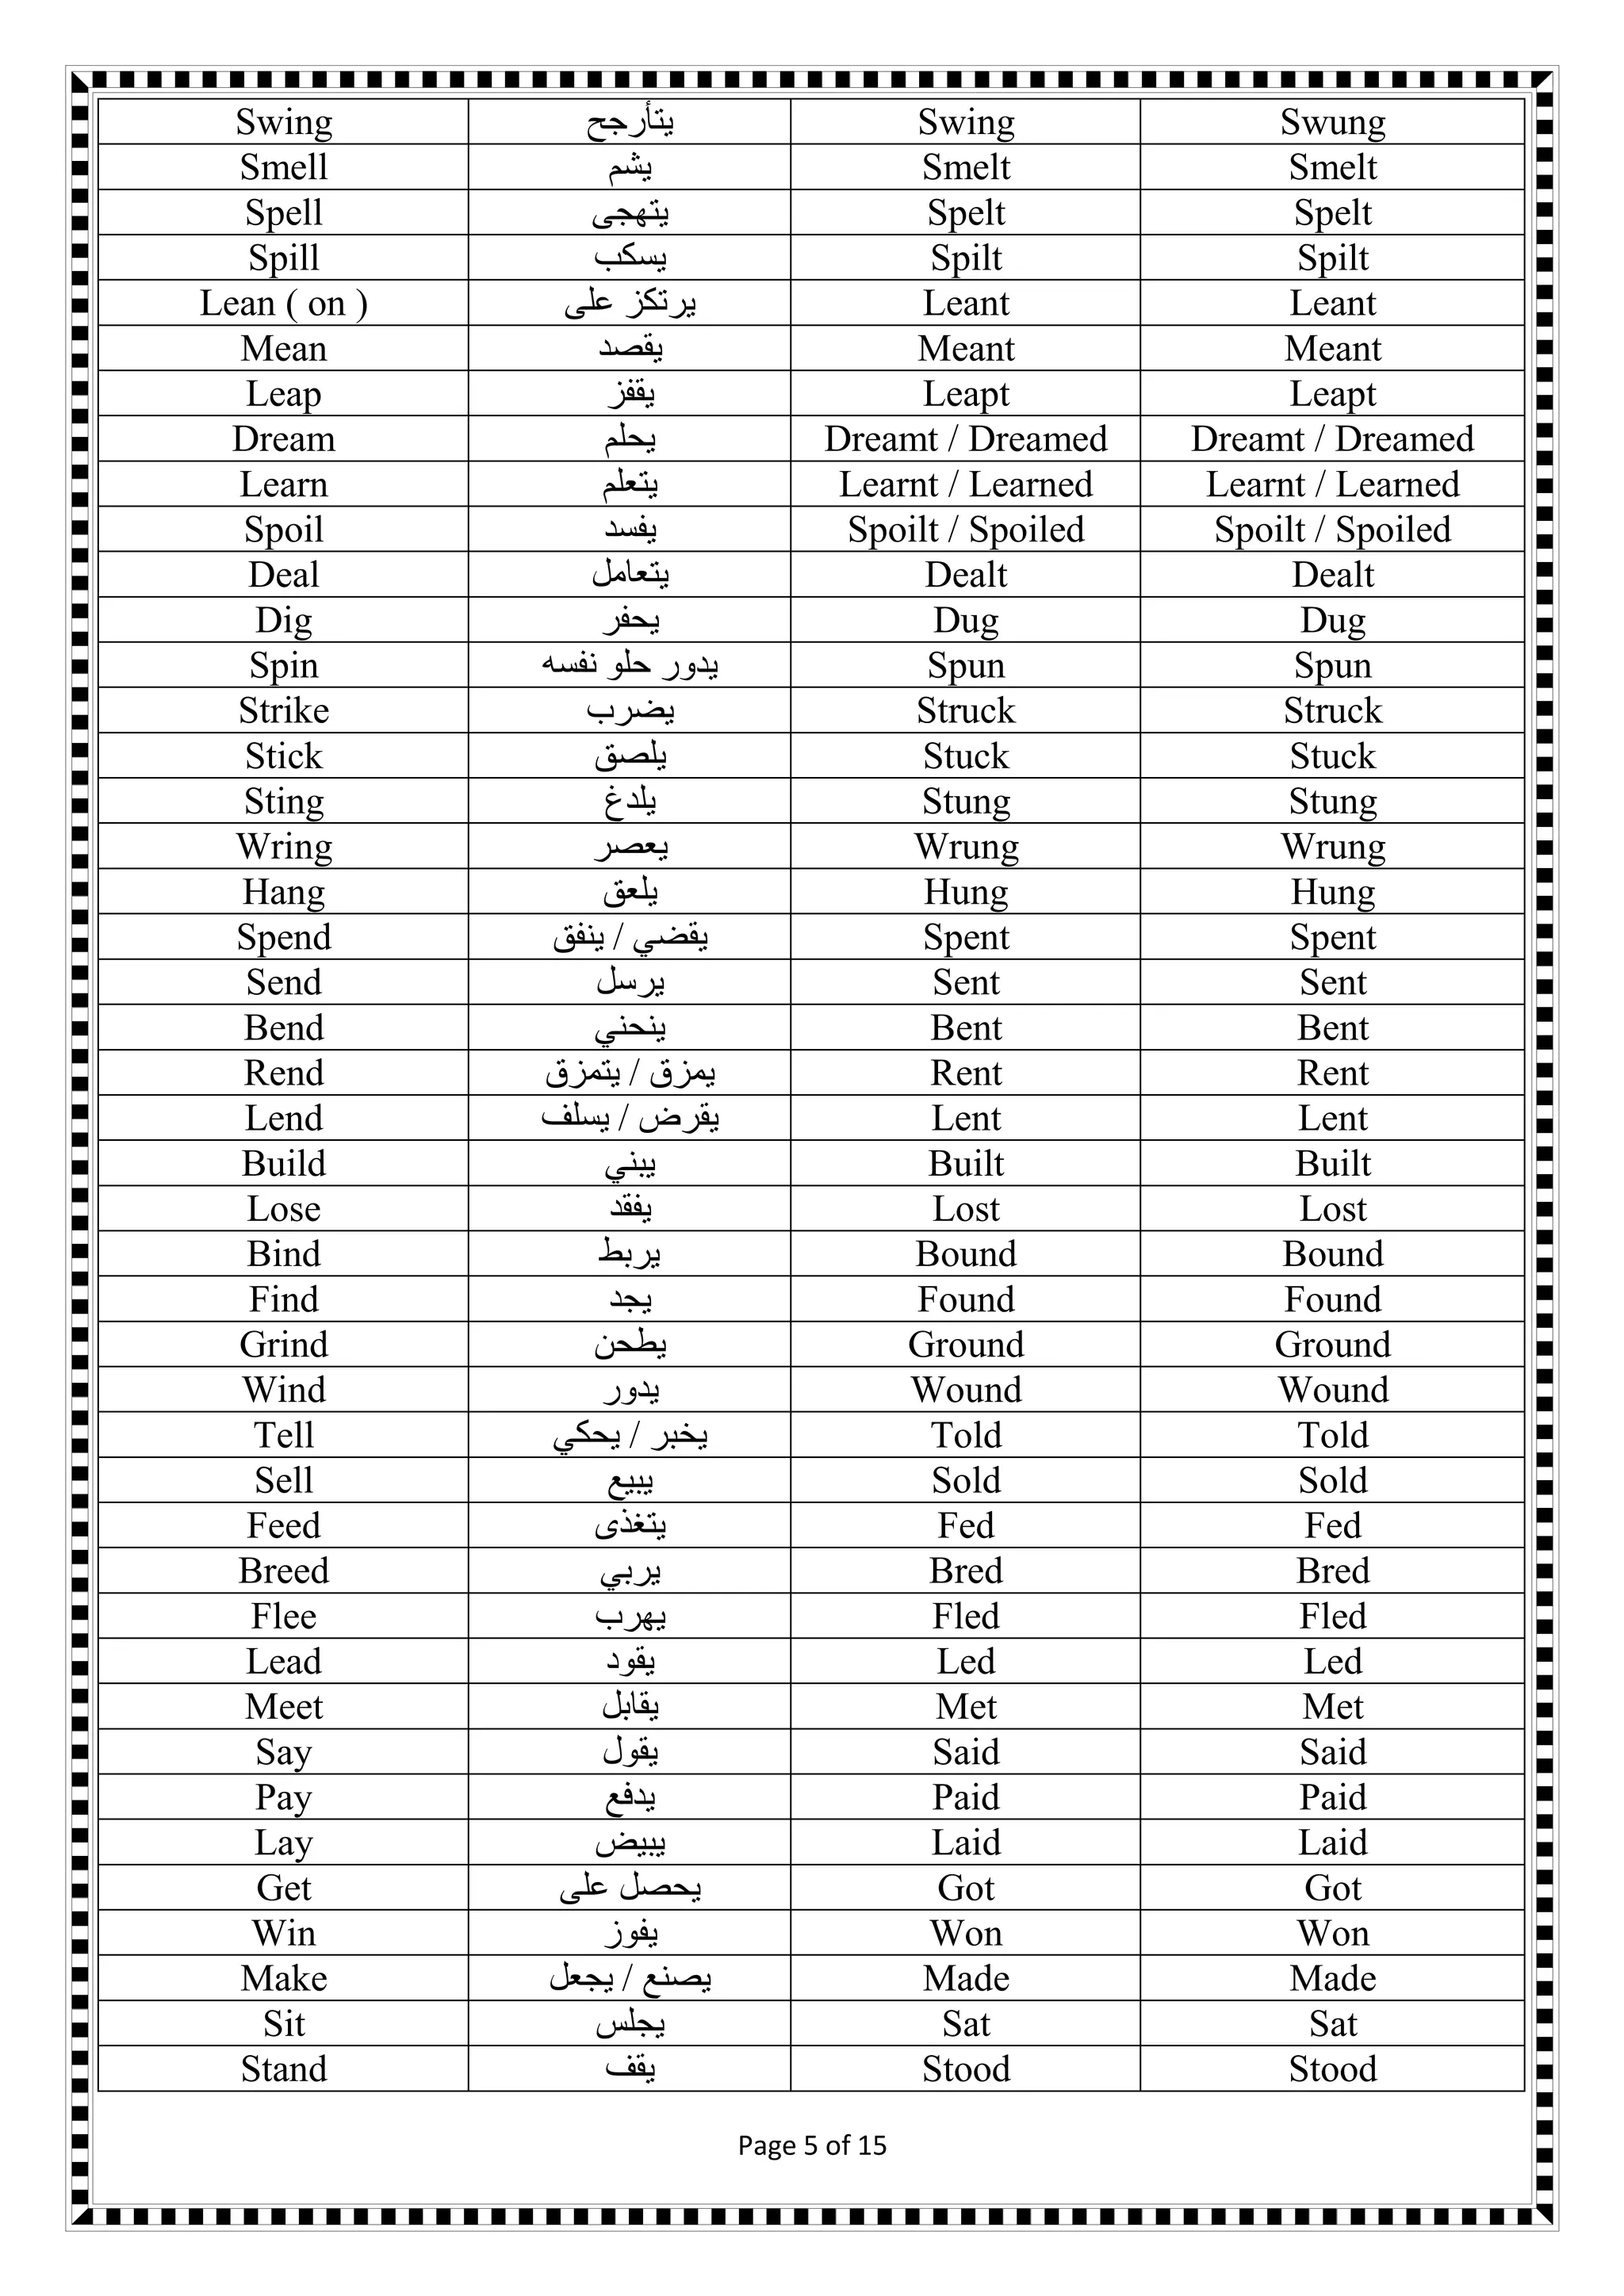 Swing يتأرجح Swing Swung
Smell يشم Smelt Smelt
Spell يتهجى Spelt Spelt
Spill يسكب Spilt Spilt
Lean ( on ) يرتكز على Leant Leant
Mean يقصد Meant Meant
Leap يقفز Leapt Leapt
Dream يحلم Dreamt / Dreamed Dreamt / Dreamed
Learn يتعلم Learnt / Learned Learnt / Learned
Spoil يفسد Spoilt / Spoiled Spoilt / Spoiled
Deal يتعامل Dealt Dealt
Dig يحفر Dug Dug
Spin يدور حلو نفسه Spun Spun
Strike يضرب Struck Struck
Stick يلصق Stuck Stuck
Sting يلدغ Stung Stung
Wring يعصر Wrung Wrung
Hang يلعق Hung Hung
Spend يقضي / ينفق Spent Spent
Send يرسل Sent Sent
Bend ينحني Bent Bent
Rend يمزق / يتمزق Rent Rent
Lend يقرض / يسلف Lent Lent
Build يبني Built Built
Lose يفقد Lost Lost
Bind يربط Bound Bound
Find يجد Found Found
Grind يطحن Ground Ground
Wind يدور Wound Wound
Tell يخبر / يحكي Told Told
Sell يبيع Sold Sold
Feed يتغذى Fed Fed
Breed يربي Bred Bred
Flee يهرب Fled Fled
Lead يقود Led Led
Meet يقابل Met Met
Say يقول Said Said
Pay يدفع Paid Paid
Lay يبيض Laid Laid
Get يحصل على Got Got
Win يفوز Won Won
Make يصنع / يجعل Made Made
Sit يجلس Sat Sat
Stand يقف Stood Stood
Page 5 of 15